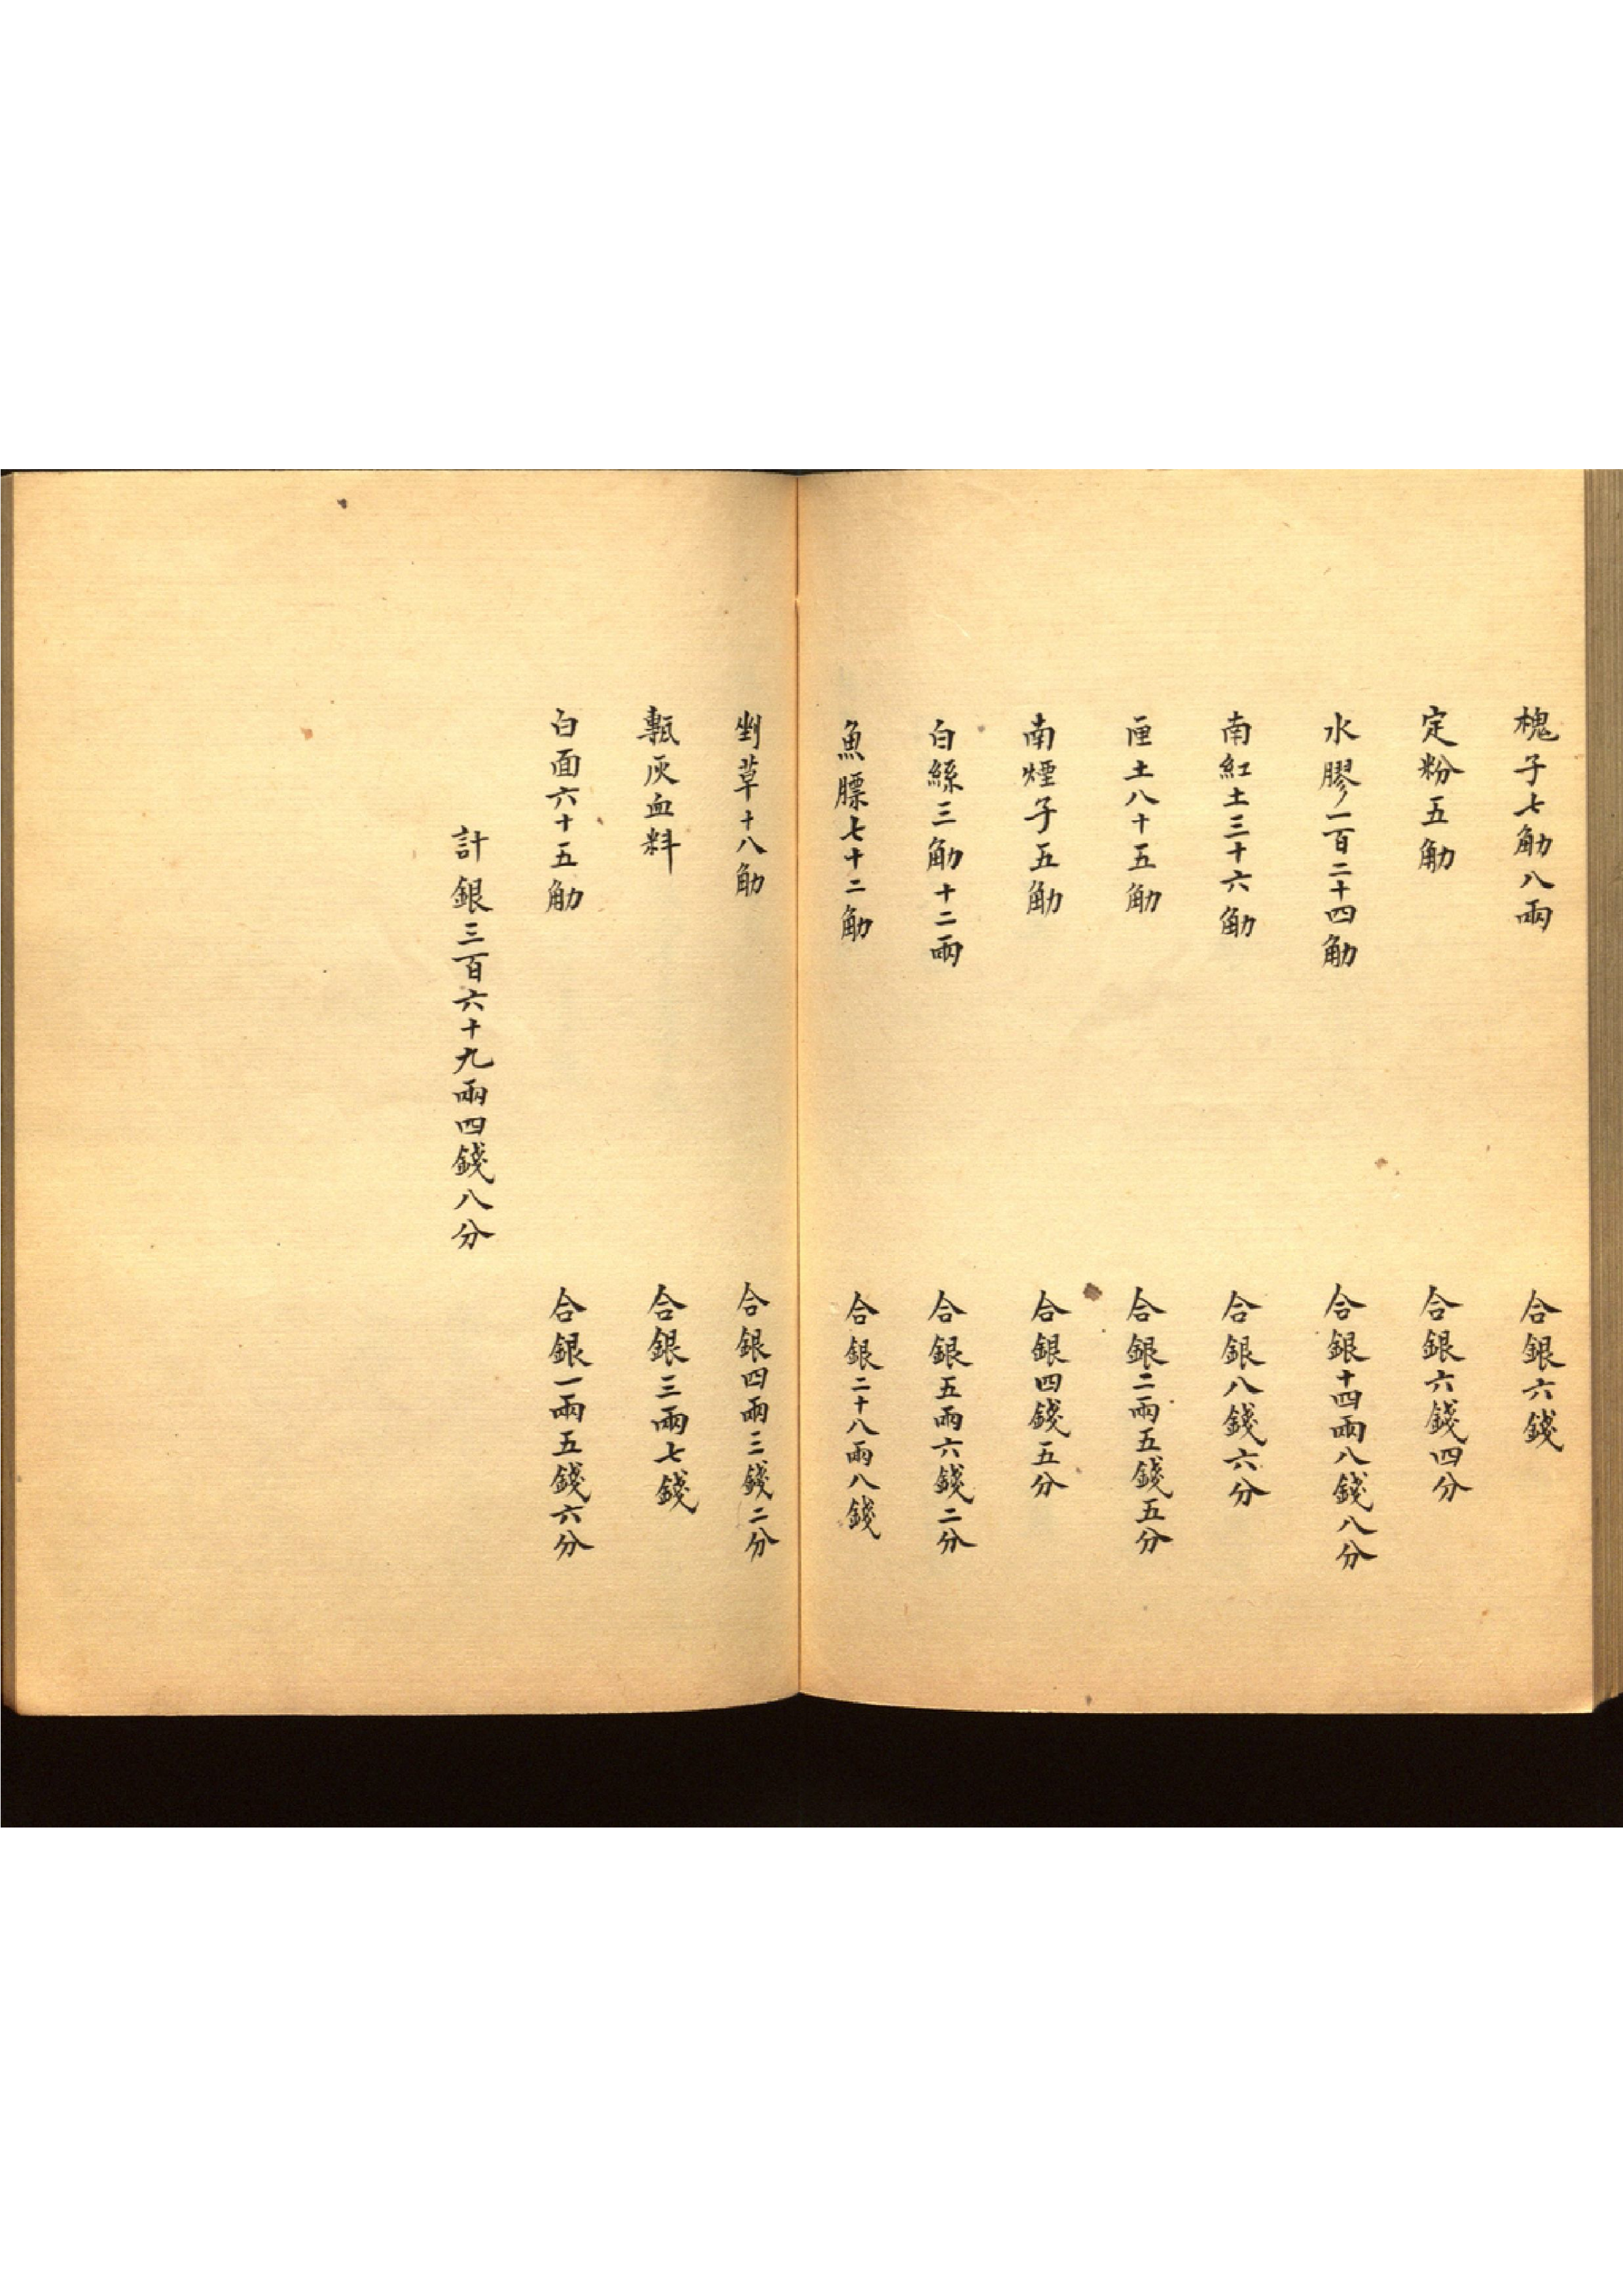 槐子七觔八兩　合銀六錢
定粉五觔　合銀六錢四分
水膠一百二十四觔　合銀十四兩八錢八分
南紅土三十六觔　合銀八錢六分
厘土八十五觔　合銀二兩五錢五分
南煙子五觔　合銀四錢五分
白絲三觔十二兩　合銀五兩六錢二分
魚膘七十二觔　合銀二十八兩八錢
剉草十八觔　合銀四兩三錢二分
甎灰血料　合銀三兩七錢
白面六十五觔　合銀一兩五錢六分
計銀三百六十九兩四錢八分